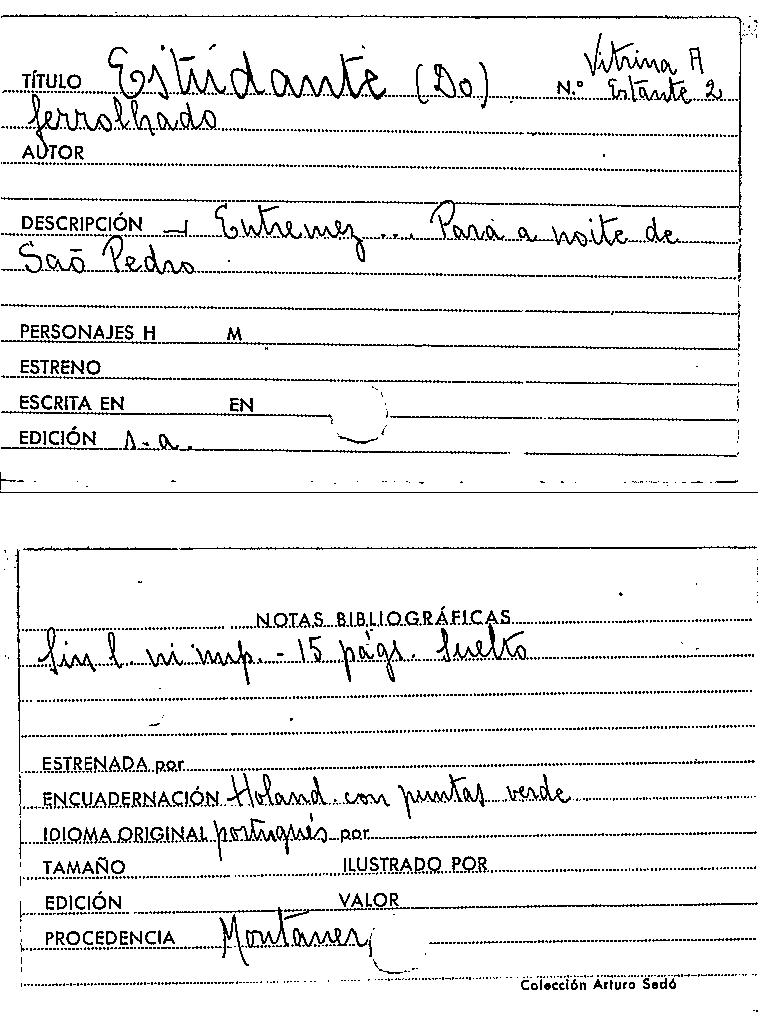 TÍTULO Estudante (Do) N.º Vitrina A Estante 2
ferrolhado
AUTOR
DESCRIPCIÓN → Entremez ... Para a noite de
Saõ Pedro
PERSONAJES H M
ESTRENO
ESCRITA EN EN
EDICIÓN s.a.
NOTAS BIBLIOGRÁFICAS
Sin l. ni imp. - 15 págs. Suelto
ESTRENADA por
ENCUADERNACIÓN Holand. con puntas verde
IDIOMA ORIGINAL portugués por
TAMAÑO ILUSTRADO POR
EDICIÓN VALOR
PROCEDENCIA Montaner
Colección Arturo Sedó